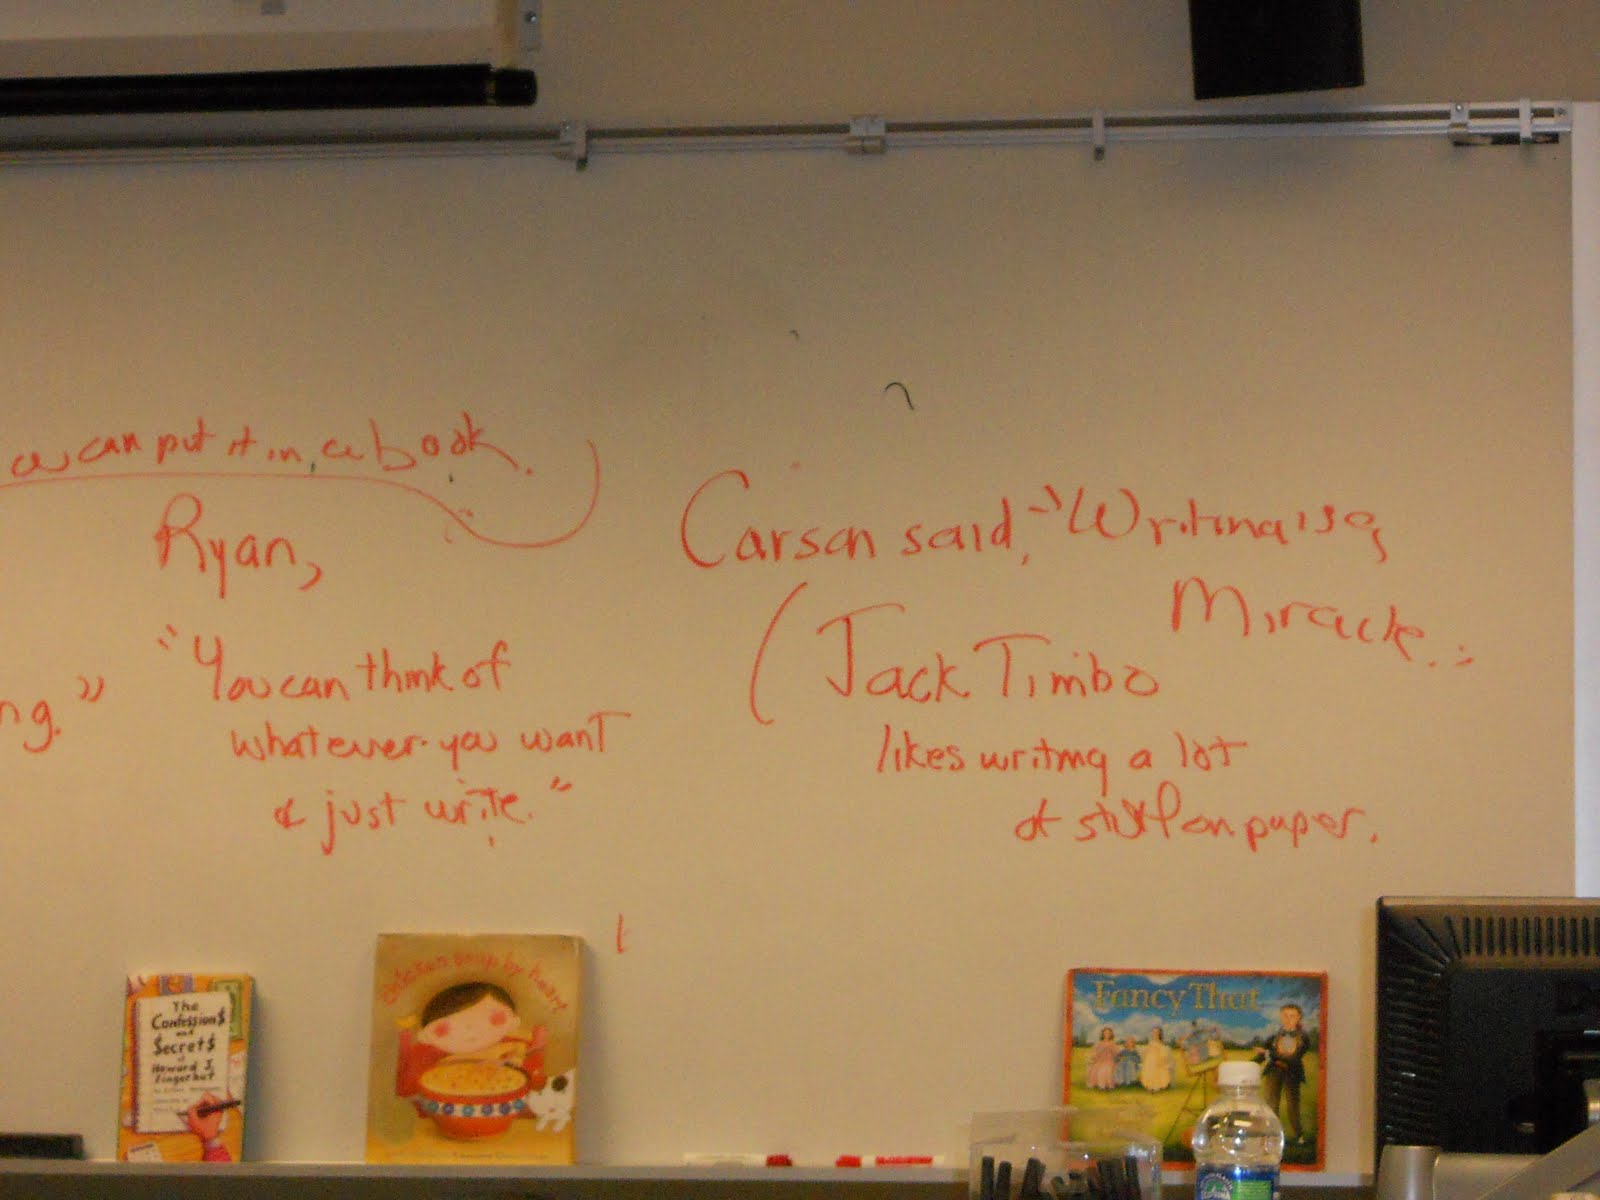 can put it in a book.
Ryan,
"You can think of
whatever you want
& just write."
ng."
Carson said, "Writing is a
Miracle."
(Jack Timbo
likes writing a lot
of stuff on paper.
The
Confession$
and
$ecret$
of
Howard J.
Fingerhut
Chicken Soup by heart
Fancy That